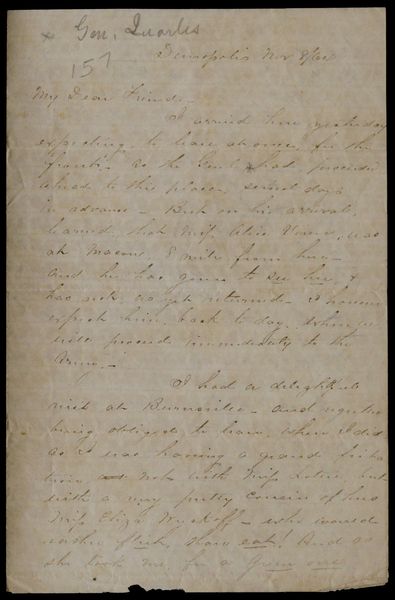 x Gen. Quarles
157
Demopolis Nov 8/64
My Dear Friend,-
I arrived here yesterday
expecting to leave at once for the
front - as the Genl had preceded
ahead to this place several days
in advance - But on his arrival,
learned that Miss Alice Vivian, was
at Macon, 8 mile from here -
and he has gone to see her, &
has not as yet returned - I however
expect him back to day, when we
will proceed immediately to the
Army.-
I had a delightful
visit at Burnsville - and regretted
being obliged to leave, when I did
as I was having a grand flirta
tion not with Miss but
with a very pretty cousin of hers
Miss Eliza Wyckoff - who would
rather flirt, than eat! And as
she took me, for a Green one